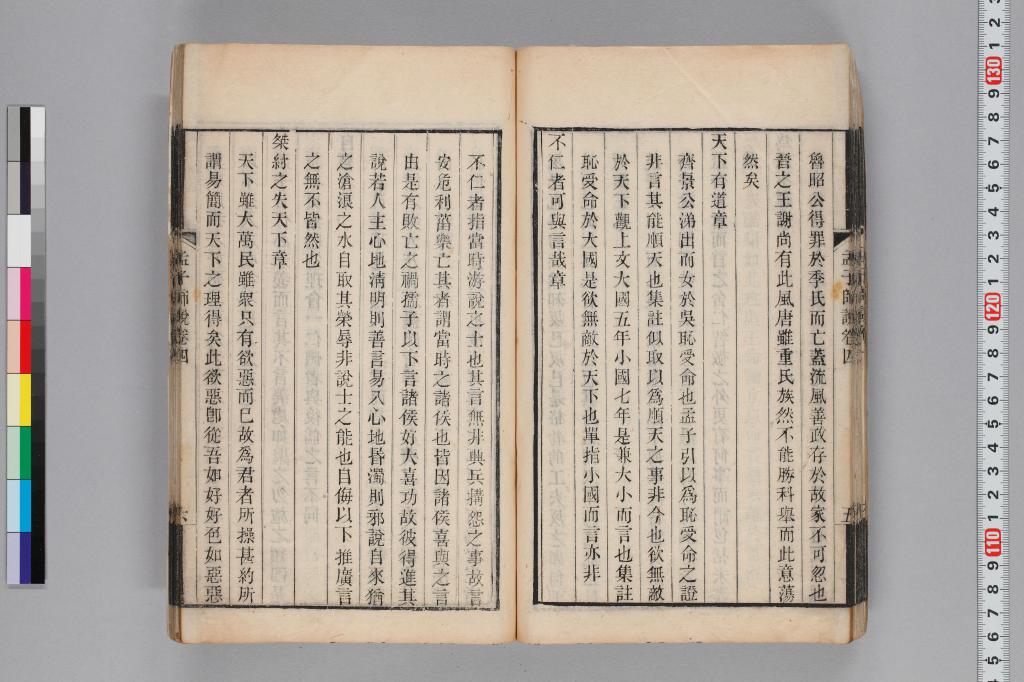 魯昭公得罪於季氏而亡蓋流風善政存於故家不可忽也
晉之王謝尚有此風唐雖重氏族然不能勝科舉而此意蕩
然矣
天下有道章
齊景公涕出而女於吳恥受命也孟子引以爲恥受命之證
非言其能順天也集註似取以爲順天之事非今也欲無敵
於天下觀上文大國五年小國七年是兼大小而言也集註
恥受命於大國是欲無敵於天下也單指小國而言亦非
不仁者可與言哉章
不仁者指當時游說之士也其言無非興兵搆怨之事故言
安危利菑樂亡其者謂當時之諸侯也皆因諸侯喜與之言
由是有敗亡之禍孺子以下言諸侯好大喜功故彼得進其
說若人主心地淸明則善言易入心地昏濁則邪說自來猶
之滄浪之水自取其榮辱非說士之能也自侮以下推廣言
之無不皆然也
桀紂之失天下章
天下雖大萬民雖衆只有欲惡而已故爲君者所操甚約所
謂易簡而天下之理得矣此欲惡卽從吾如好好色如惡惡
孟子師說卷四
五
孟子師說卷四
六
130
120
110